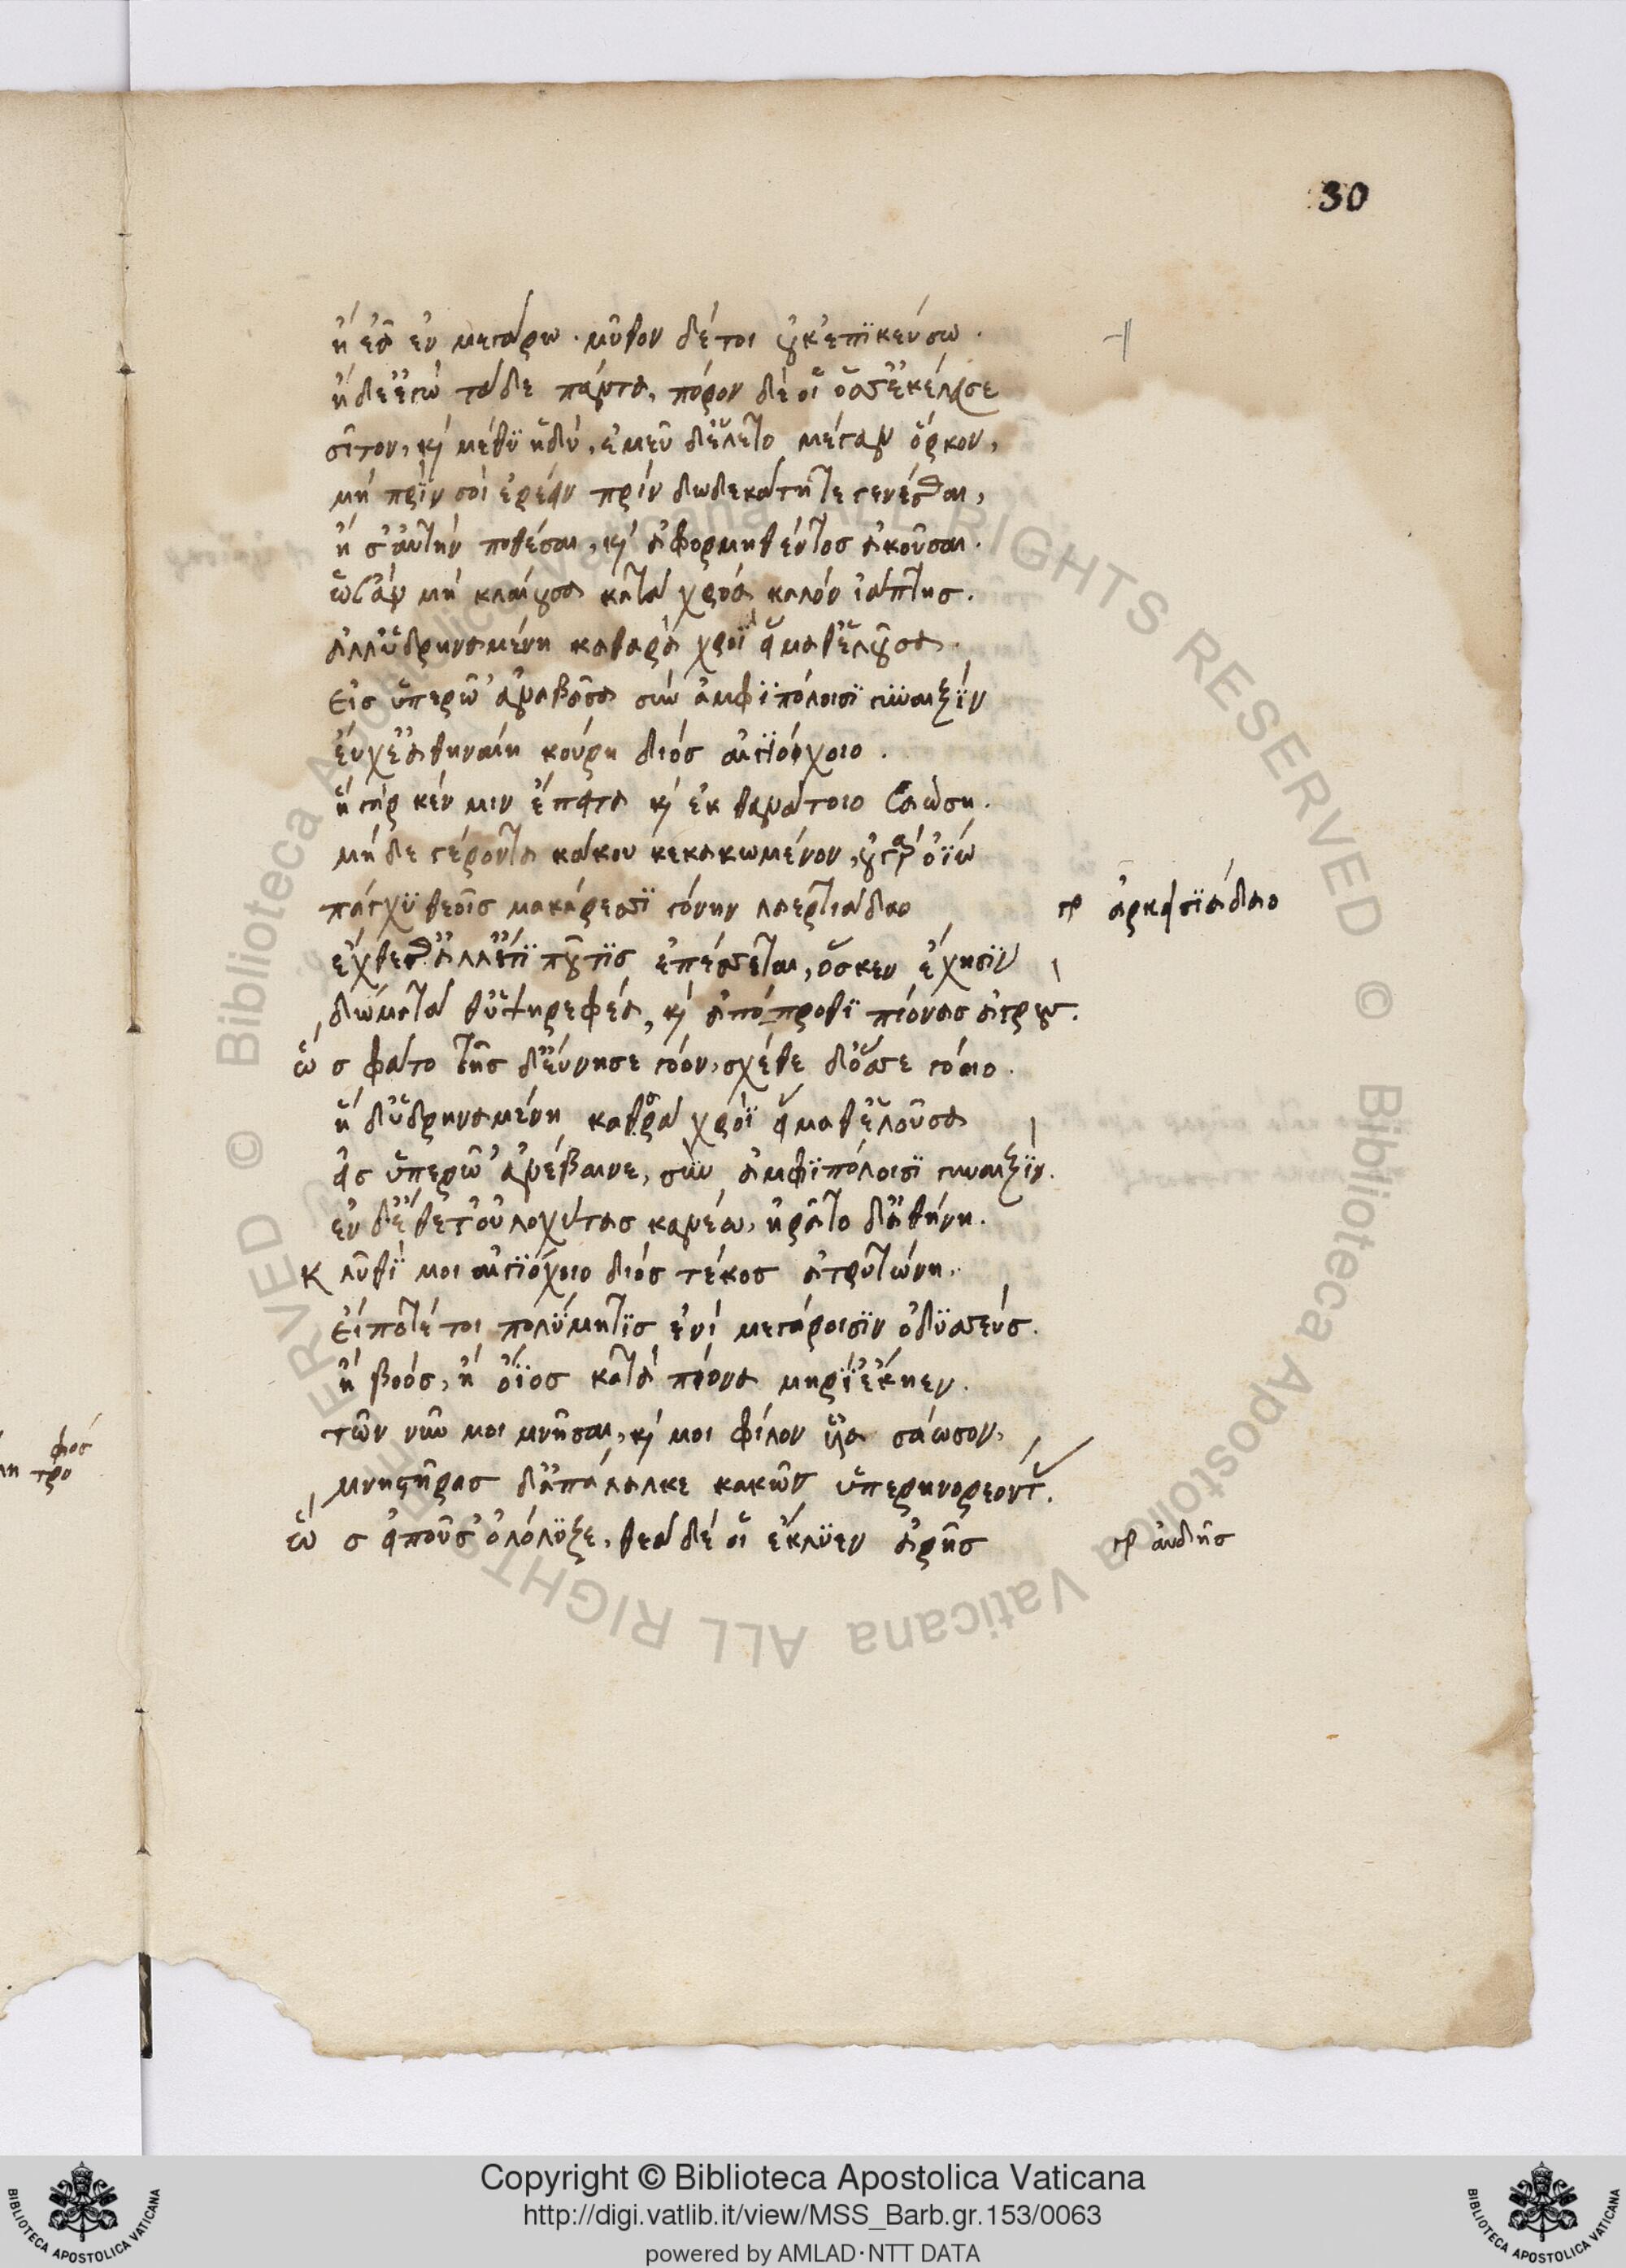 30
ἢ ἔα ἐν μεγάρω. μῦθον δέ τοι οὐκ ἐπϊκεύσω.
ἤδε ἐγὼ τάδε πάντα, πόρον δέ οἱ ὅσσ' ἐκέλευσε
σῖτον, καὶ μέθϋ ἡδύ, ἐμεῦ δ' ἕλετο μέγαν ὅρκον,
μὴ πρϊν σοὶ ἐρέειν πρὶν δωδεκάτην τε γενέσθαι,
ἢ σ' αὐτὴν ποθέσαι, καὶ ἀφορμηθέντος ἀκοῦσαι.
ὡς ἂν μὴ κλαίουσα κατὰ χρόα καλὸν ἰάπτης.
ἀλλ' ὑδρηναμένη καθαρὰ χροῒ εἵμαθ' ἑλοῦσα.
εἰς ὑπερῶ' ἀναβᾶσα σὺν ἀμφϊπόλοισϊ γυναιξὶν
εὔχε' ἀθηναίη κούρη διὸς αἰγϊόχοιο.
ἡ γάρ κέν μιν ἔπειτα καὶ ἐκ θανάτοιο σαώση.
μὴ δὲ γέροντα κάκου κεκακωμένον, οὐ γὰρ ὀΐω
πάγχϋ θεοῖς μακάρεσσϊ γόνην λαερτιάδαο
γρ ἀρκεισϊάδαο
ἔχθεσθ' ἀλλ' ἔτϊ πού τϊς ἐπέσσεται, ὅς κεν ἔχησϊν
δώματά θ' ὑψηρεφέα, καὶ ἀπόπροθϊ πίονας ἀγρούς.
ὣς φάτο τῆς δ' εὔνησε γόον, σχέθε δ' ὄσσε γόοιο.
ἡ δ' ὑδρηναμένη καθαρὰ χροῒ εἵμαθ' ἑλοῦσα
εἰς ὑπερῶ' ἀνέβαινε, σὺν ἀμφϊπόλοισϊ γυναιξϊν.
ἐν δ' ἔθετ' οὐλοχύτας κανέω, ἠρᾶτο δ' ἀθήνη.
κλῦθϊ μοι αἰγϊόχοιο διὸς τέκος ἀτρυτώνη.
εἴ ποτέ τοι πολύμητϊς ἐνὶ μεγάροισϊν ὀδϋσσεύς.
ἢ βοός, ἢ ὄϊος κατὰ πίονα μηρί' ἔκηεν.
τῶν νῦν μοι μνῆσαι, καί μοι φίλον υἷα σάωσον,
μνηστῆρας δ' ἀπάλαλκε κακῶς ὑπερηνορέοντας.
ὣς εἰποῦσ' ὀλόλϋξε, θεὰ δέ οἱ ἔκλϋεν ἀρῆς
γρ αὐδῆς
Copyright © Biblioteca Apostolica Vaticana
http://digi.vatlib.it/view/MSS_Barb.gr.153/0063
powered by AMLAD·NTT DATA